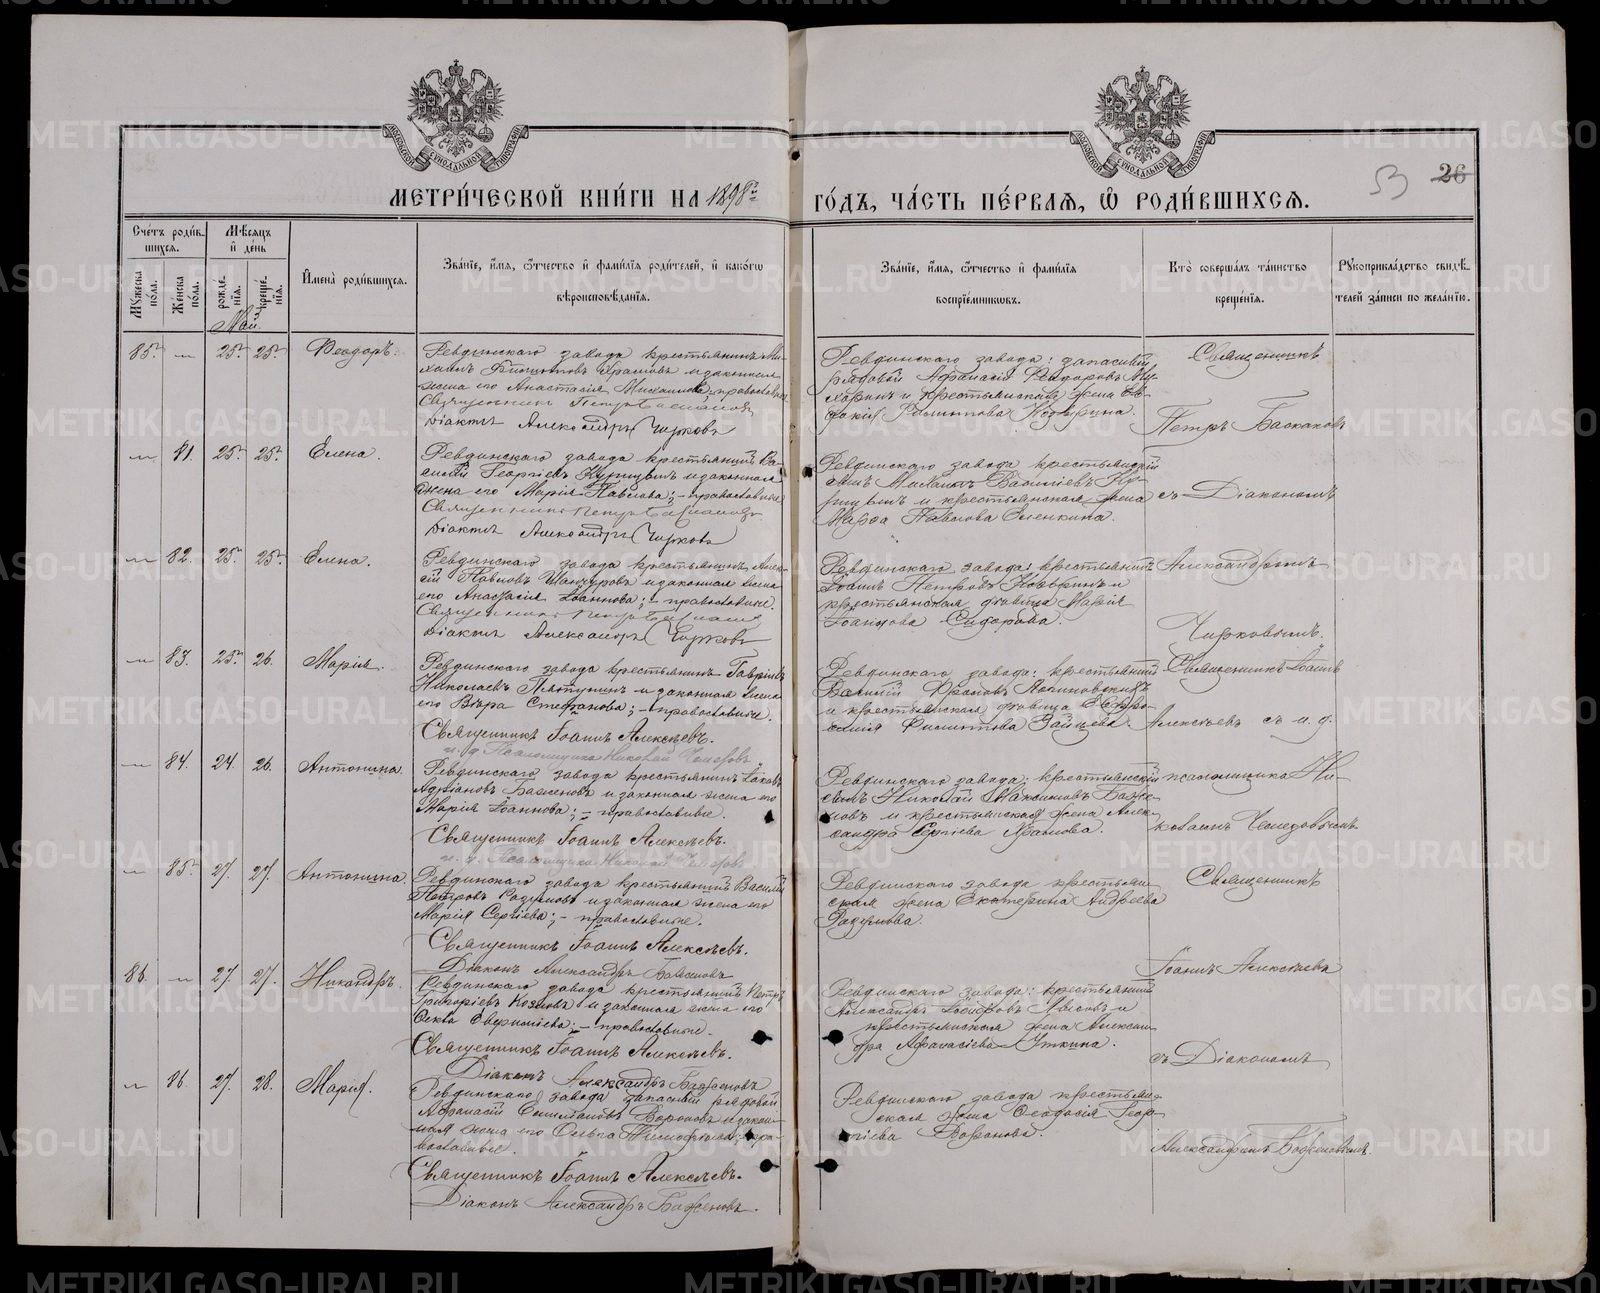 МЕТРИ́ЧЕСКОЙ КНИ́ГИ НА 1898й ГО́ДЪ, ЧА́СТЬ ПЕ́РВАЯ, Ѿ РОДИ́ВШИХСЯ.
53 26
Сче́тъ роди́в-
шихся.
Мѣ́сяцъ
и҆ де́нь
Мꙋ́жеска по́ла.
Же́нска по́ла.
рожде́-
нїѧ.
креще́-
нїѧ.
Май.
И҆мена̀ роди́вшихся.
Зва́нїе, и҆́мѧ, ѻ҆́тчество и҆ фами́лїѧ роди́телей, и҆ како́гѡ
вѣроисповѣ́данїѧ.
Зва́нїе, и҆́мѧ, ѻ҆́тчество и҆ фами́лїѧ
воспрїе́мникѡвъ.
Кто̀ соверша́лъ та́инство
креще́нїѧ.
Рꙋкоприкла́дство свидѣ́-
телей за́писи по жела́нїю.
85. — 25. 25. Ѳеодоръ.
Ревдинскаго завода крестьянинъ Ми-
хаилъ Филипповъ Храмовъ и законная
жена его Анастасія Михаилова; православные
Священникъ Петръ Баскаковъ
Діаконъ Александръ Чирковъ
Ревдинскаго завода: запасный
рядовой Афанасій Ѳеодоровъ
и крестьянская жена Ев-
докія Филиппова
Священникъ
Петръ Баскаковъ
— 81. 25. 25. Елена.
Ревдинскаго завода крестьянинъ Ва-
силій Георгіевъ и законная
жена его Марія Павлова; – православные
Священникъ Петръ Баскаковъ
Діаконъ Александръ Чирковъ
Ревдинскаго завода крестьянскій
сынъ Михаилъ Васильевъ
и крестьянская жена
Марѳа Павлова Еленкина.
съ Діакономъ
— 82. 25. 25. Елена.
Ревдинскаго завода крестьянинъ Алек-
сій Павловъ и законная жена
его Анастасія Іоаннова; – православные.
Священникъ Петръ Баскаковъ
Діаконъ Александръ Чирковъ
Ревдинскаго завода: крестьянинъ
Іоаннъ Петровъ и
крестьянская дѣвица Марія
Іоаннова Сидорова.
Александромъ
Чирковымъ.
— 83. 25. 26. Марія.
Ревдинскаго завода крестьянинъ Гавріилъ
Николаевъ и законная жена
его Вѣра Стефанова; – православные.
Священникъ Іоаннъ Алексѣевъ.
и. д. Псаломщика Николай Чемезовъ
Ревдинскаго завода: крестьянинъ
Василій
и крестьянская дѣвица Ев-
Филиппова Зайцева.
Священникъ Іоаннъ
Алексѣевъ съ и. д.
— 84. 24. 26. Антонина.
Ревдинскаго завода крестьянинъ Іаковъ
Адріановъ Баженовъ и законная жена его
Марія Іоаннова; – православные.
Священникъ Іоаннъ Алексѣевъ.
и. д. Псаломщика Николай Чемезовъ
Ревдинскаго завода: крестьянскій
сынъ Николай Максимовъ Баже-
новъ и крестьянская жена Алек-
сандра Сергіева Храмова.
псаломщика Ни-
колаемъ Чемезовымъ
— 85. 27. 27. Антонина.
Ревдинскаго завода крестьянинъ Василій
Петровъ и законная жена его
Марія Сергіева; – православные.
Священникъ Іоаннъ Алексѣевъ.
Діаконъ Александръ Баженовъ
Ревдинскаго завода крестьян-
ская жена Екатерина Андреева
Священникъ
Іоаннъ Алексѣевъ
86. — 27. 27. Никандръ.
Ревдинскаго завода крестьянинъ Петръ
Григоріевъ и законная жена его
православные.
Священникъ Іоаннъ Алексѣевъ.
Діаконъ Александръ Баженовъ
Ревдинскаго завода: крестьянинъ
Александръ и
крестьянская жена Алексан-
дра Афанасіева Уткина.
съ Діакономъ
— 86. 27. 28. Марія.
Ревдинскаго завода запасный рядовой
Афанасій Вороновъ и закон-
ная жена его Ольга Тимофеева; пра-
вославные.
Священникъ Іоаннъ Алексѣевъ.
Діаконъ Александръ Баженовъ.
Ревдинскаго завода крестьян-
ская жена Ѳеодосія Геор-
гіева Воронова.
Александромъ Баженовымъ.
METRIKI.GASO-URAL.RU